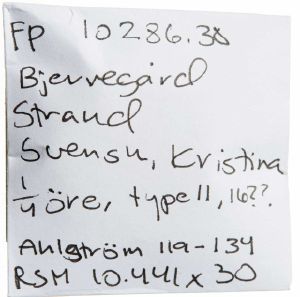 FP 10286.38
Bjervegård
Strand
Svensk, Kristina
1/4 öre, type 11, 16??.
Ahlström 119-134
RSM 10.441 x 30